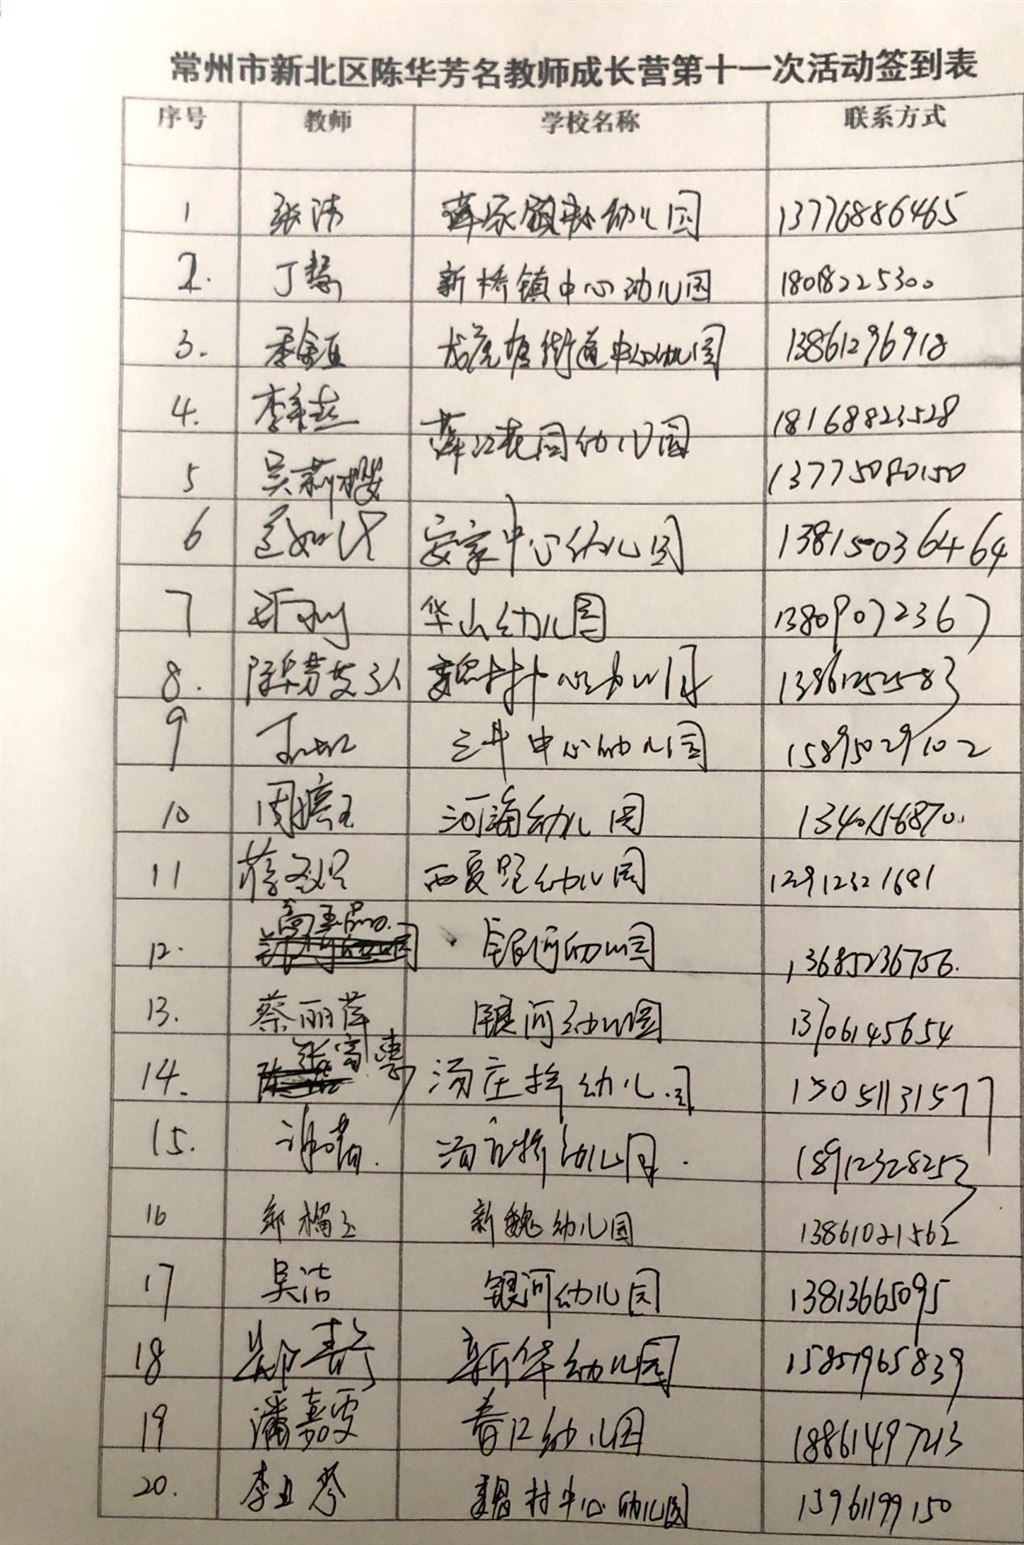 常州市新北区陈华芳名教师成长营第十一次活动签到表
序号 教师 学校名称 联系方式
1 张沛 薛家镇中心幼儿园 13776886465
2. 丁慧 新桥镇中心幼儿园 18018225300
3. 龙虎塘街道中心幼儿园 13861296918
4. 18168823528
薛江花园幼儿园
5 吴莉樱 13775080150
6 安家中心幼儿园 13815036464
7 华山幼儿园 13809072367
8. 陈华芳 魏村中心幼儿园 13861252583
9 三井中心幼儿园 15895029102
10 周 河海幼儿园
11 蒋 西夏墅幼儿园
12. 银河幼儿园 13685236756.
13. 蔡丽萍 银河幼儿园 13706145654
14. 汤庄桥幼儿园 15051131577
15. 汤庄桥幼儿园. 18912328253
16 郑榴玉 新魏幼儿园 13861021562
17 吴洁 银河幼儿园 13813665095
18 新华幼儿园 15851965839
19 潘嘉雯 春江幼儿园 18861497213
20. 李亚琴 魏村中心幼儿园 13961199150